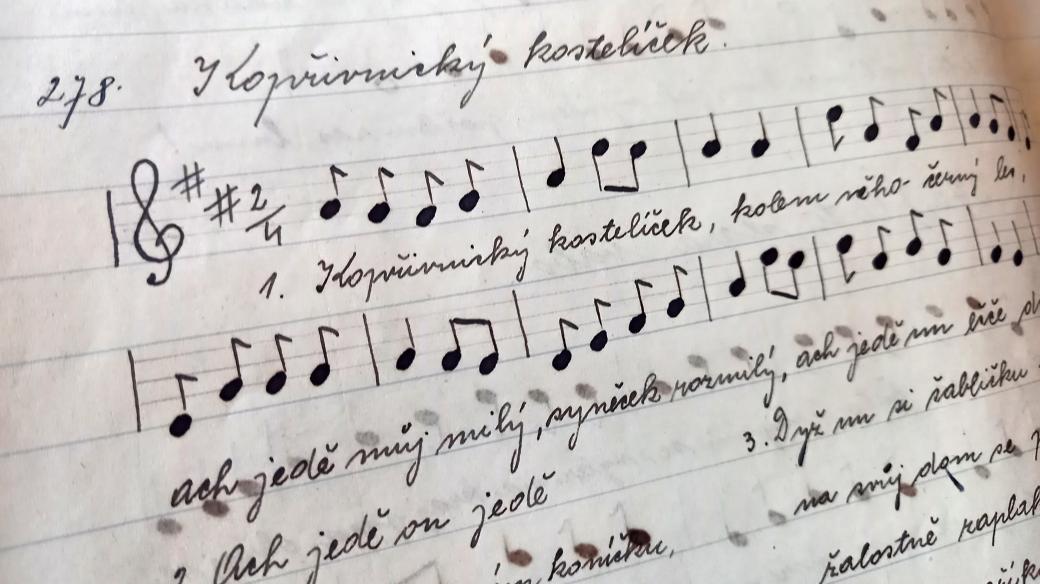 278. Kopřivnický kostelíček.
2/4
1. Kopřivnický kostelíček, kolem něho černý les,
ach jedě můj milý, syneček rozmilý, ach jedě un
2. Ach jedě on jedě
koníčku,
3. Dyž un si šabličku
na svůj dom se
žalostně